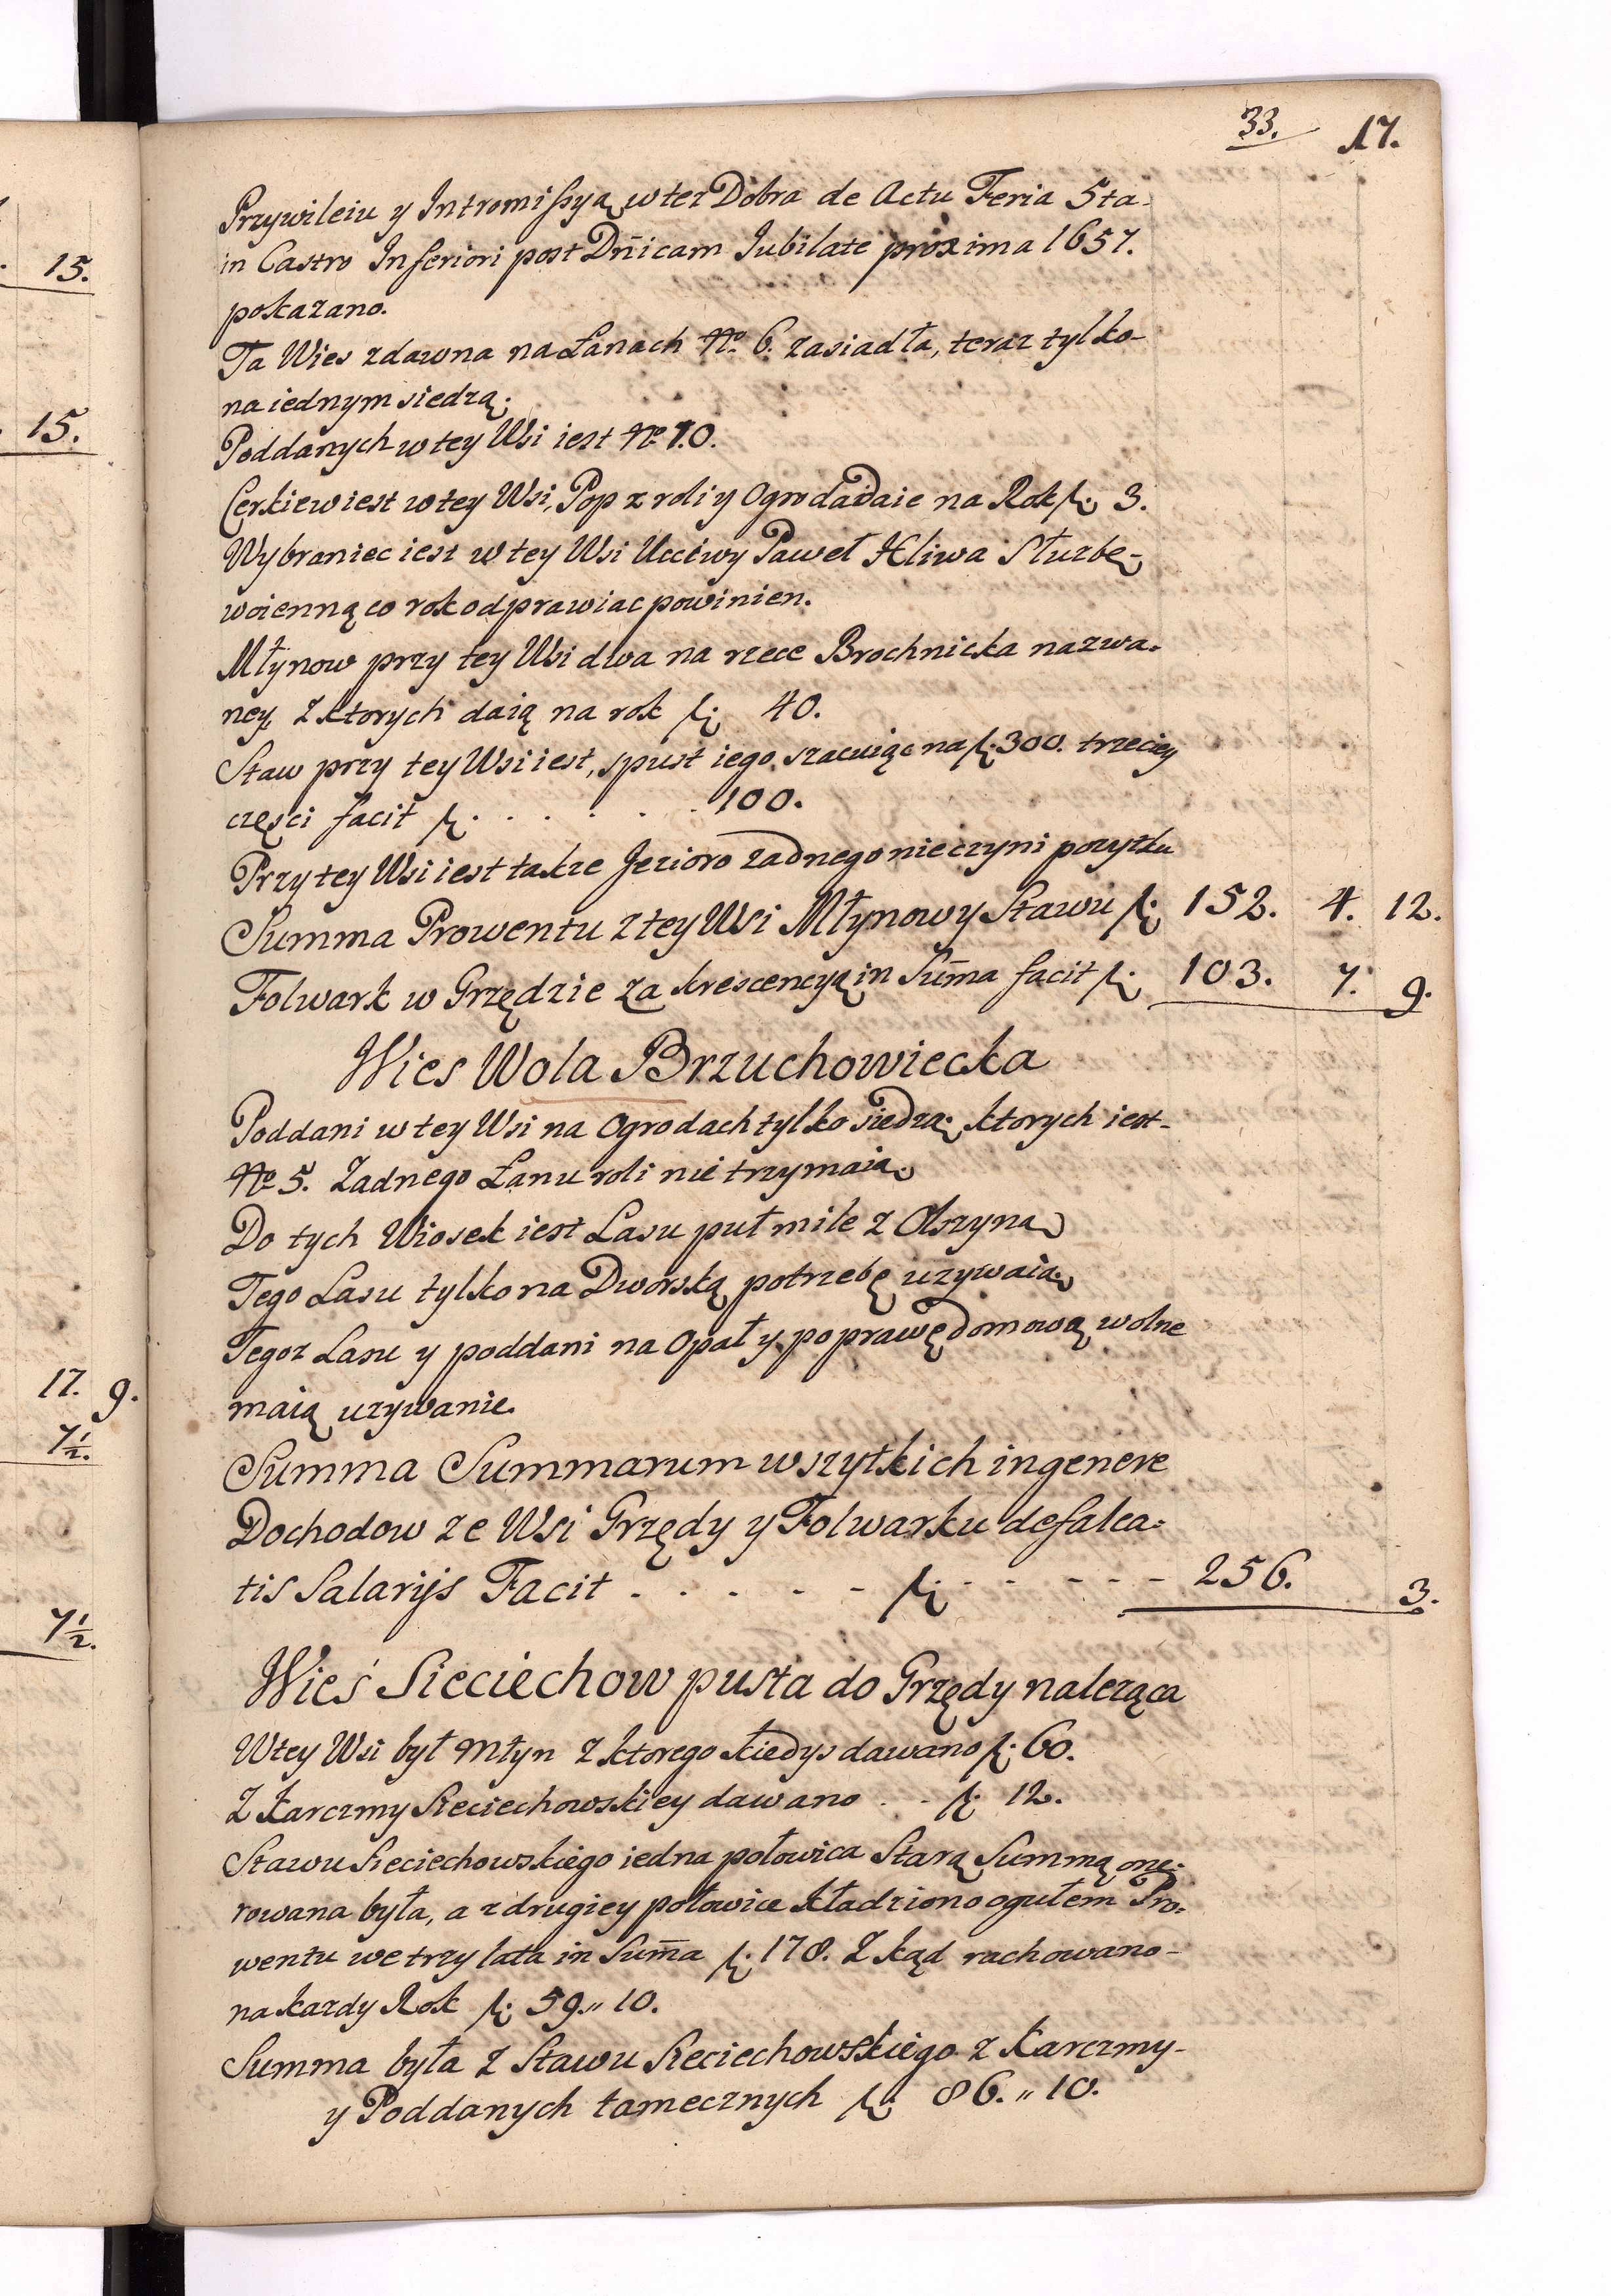 33. 17.
Przywileiu y Intromissyą wtez Dobra de Actu Feria 5ta
in Castro Inferiori post Dñicam Iubilate proxima 1657.
pokazano.
Ta Wies zdawna na Łanach No. 6. zasiadła, teraz tylko-
na iednym siedzą.
Poddanych w tey Wsi iest No 10.
Cerkiew iest w tey Wsi, Pop z roli y Ogroda daie na Rok f. 3.
Wybraniec iest w tey Wsi Ucciwy Paweł Hliwa Słuzbę-
woienną co rok odprawiac powinien.
Młynow przy tey Wsi dwa na rzece Brochnicka nazwa-
ney, z ktorych daią na rok f. 40.
Staw przy tey Wsi iest, spust iego szacuiąc na f. 300. trzeciey
częsci facit f. . . . . . . 100.
Przy tey Wsi iest takze Jezioro zadnego nie czyni pozytku
Summa Prowentu z tey Wsi Młynow y Stawu f. 152. 4. 12.
Folwark w Grzędzie za krescencyą in Sum̄a facit f. 103. 7. 9.
Wies Wola Brzuchowiecka
Poddani w tey Wsi na Ogrodach tylko siedzą, ktorych iest-
No 5. Zadnego Łanu roli nie trzymaią.
Do tych Wiosek iest Lasu puł mile z Olszyną
Tego Lasu tylko na Dworską potrzebę uzywaią.
Tegoz Lasu y poddani na Opał y poprawę domową wolne
maią uzywanie.
Summa Summarum wszytkich in genere
Dochodow ze Wsi Grzędy y Folwarku defalca-
tis Salarijs Facit . . . . - - f. - - - - - 256. 3.
Wieś Sieciechow pusta do Grzędy naleząca
W tey Wsi był Młyn z ktorego kiedys dawano f. 60.
Z Karczmy Sieciechowskiey dawano . . f. 12.
Stawu Sieciechowskiego iedna połowica Starą Summą one-
rowana była, a z drugiey połowice kładziono ogułem Pro-
wentu we trzy lata in Sum̄a f. 178. Zkąd rachowano-
na kazdy Rok f. 59.„ 10.
Summa była z Stawu Sieciechowskiego z Karczmy-
y Poddanych tamecznych f. 86.„ 10.
15.
15.
17. 9.
7½.
7½.